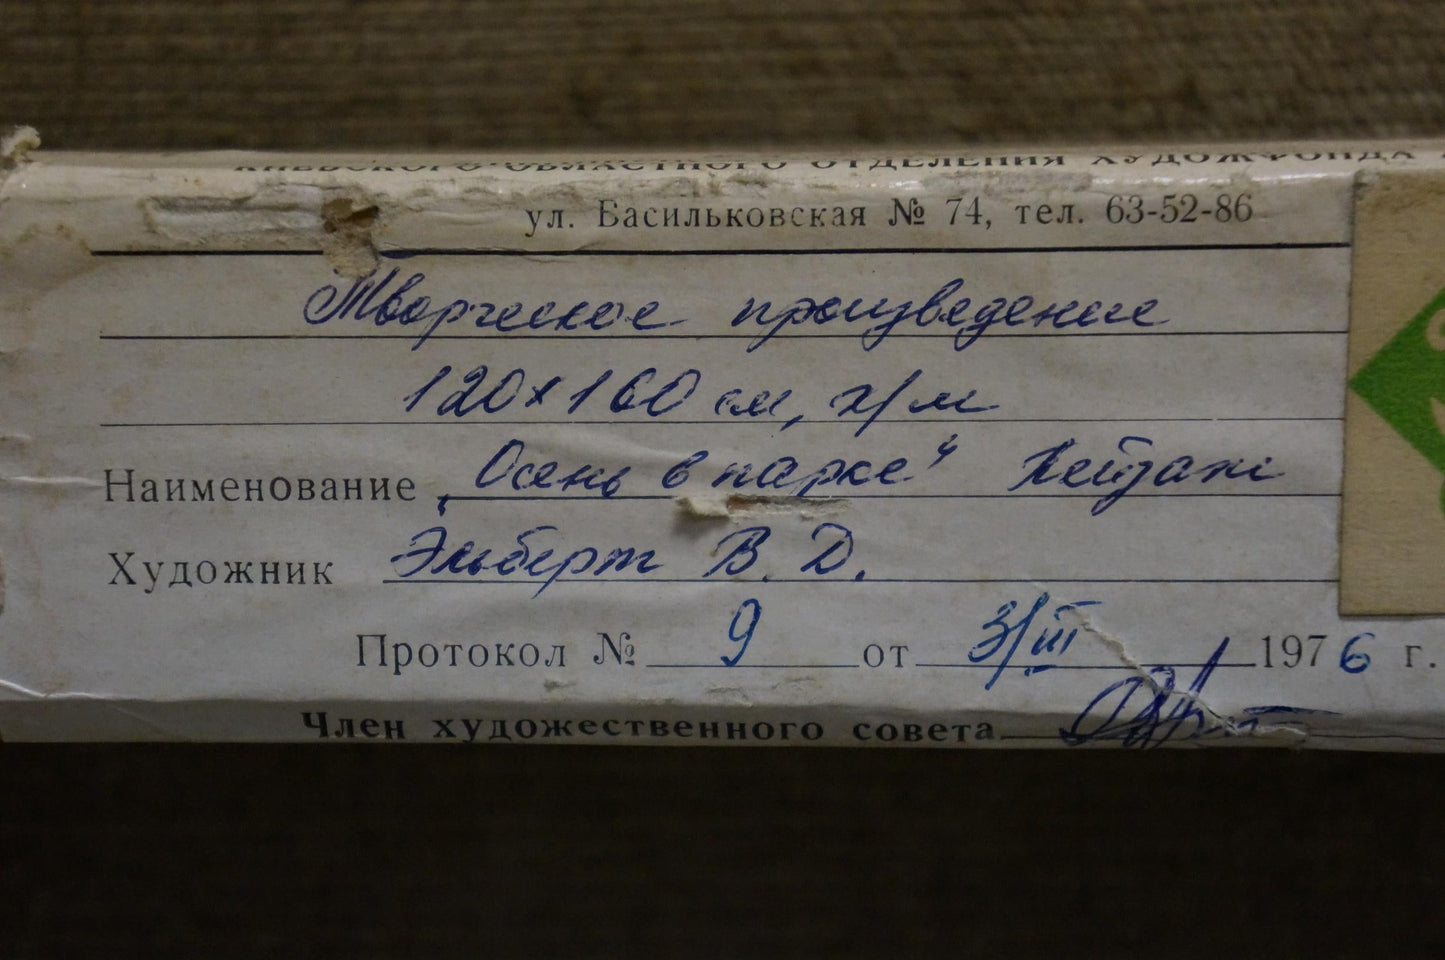 КИЕВСКОГО ОБЛАСТНОГО ОТДЕЛЕНИЯ ХУДОЖФОНДА
ул. Басильковская № 74, тел. 63-52-86
Творческое произведение
120х160 см, х/м
Наименование „Осень в парке“ Пейзаж
Художник Эльберт В. Д.
Протокол № 9 от 3/III 1976 г.
Член художественного совета